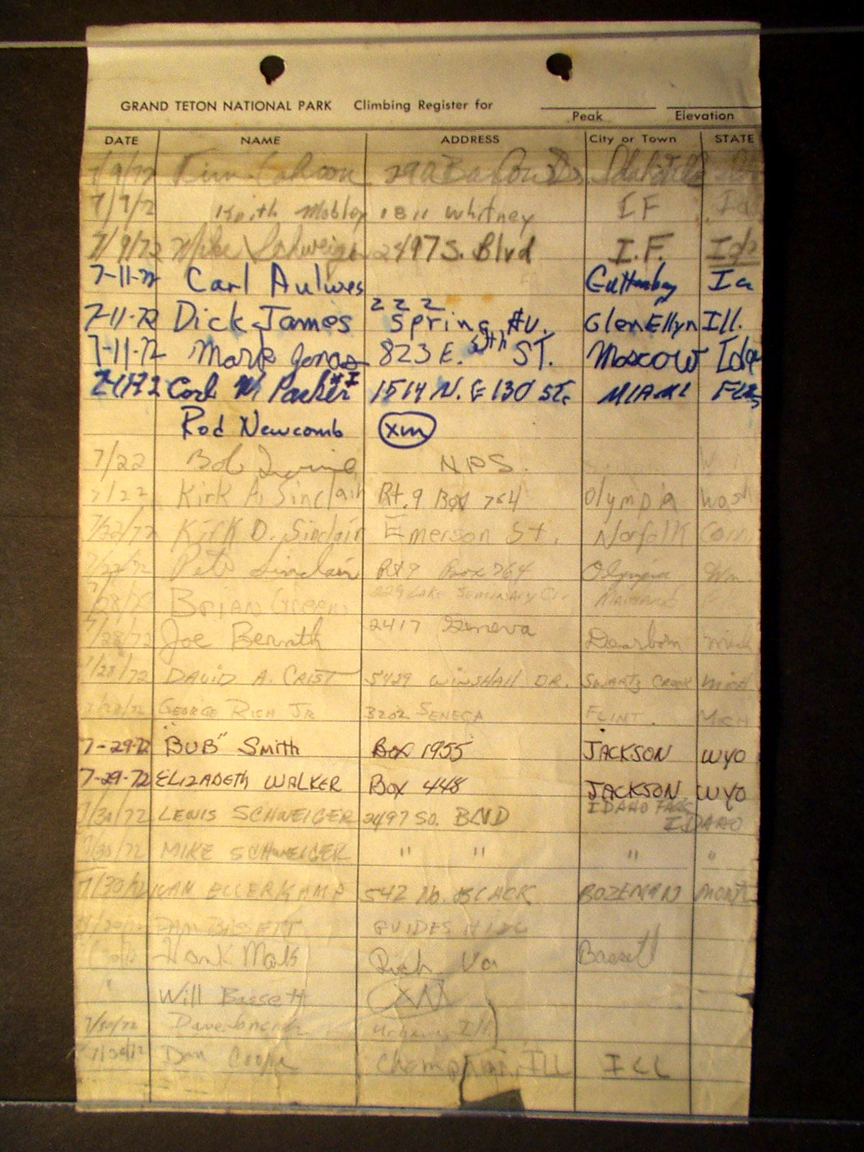 GRAND TETON NATIONAL PARK Climbing Register for
Peak Elevation
DATE NAME ADDRESS City or Town STATE
7/9/72
7/7/72 Keith Mobley 1811 Whitney IF
7/9/72 Mike 2497 S. Blvd I.F. Ida
7-11-72 Carl Aulwes Guttenberg Ia
7-11-72 Dick James 222 Spring Av. Glen Ellyn Ill.
7-11-72 Mark Jonas 823 E. ST. Moscow Ida
Carl M Parker 1514 N. E 130 ST. MIAMI FLA
Rod Newcomb XM
7/22 Bob Irvine NPS.
7/22 Kirk A. Sinclair Rt. 9 Box 764 Olympia Wash
7/22/72 Kirk D. Sinclair Emerson St. Norfolk Conn
7/22/72 Pete Sinclair Rt 9 Box 764 Olympia Wn.
BRIAN GREEN
7/28/72 Joe Bernth 2417 Geneva Dearborn Mich
7/28/72 DAVID A. CRIST 5429 WINSHALL DR. SWARTZ CREEK MICH
GEORGE RICH JR 3202 SENECA FLINT MICH
7-29-72 "BUB" Smith BOX 1955 JACKSON WYO
7-29-72 ELIZABETH WALKER Box 448 JACKSON WYO
7/30/72 LEWIS SCHWEIGER 2497 SO. BLVD IDAHO FALLS IDAHO
7/30/72 MIKE SCHWEIGER " " " "
7/30/72 ELLERKAMP 542 BLACK BOZEMAN MONT
BASSETT GUIDES HILL
Va Bassett
" Will Bassett XM
7/30/72 Urbana, Ill
7/30/72 Dan Champaign, ILL ILL